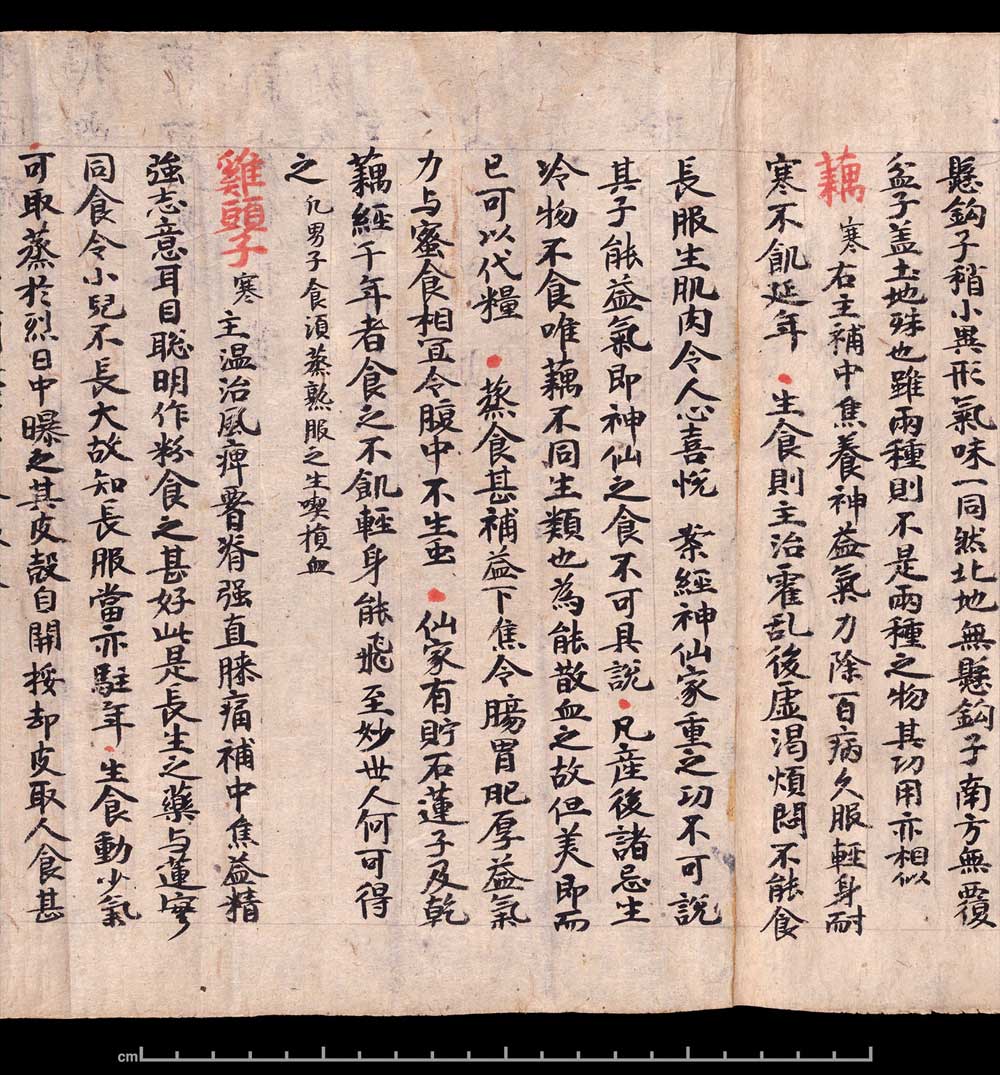 懸鈎子稍小異形氣味一同然北地無懸鈎子南方無覆
盆子盖土地殊也雖兩種則不是兩種之物其功用亦相似
藕 寒 右主補中焦養神益氣力除百病久服輕身耐
寒不飢延年 ・生食則主治霍乱後虚渴煩悶不能食
長服生肌肉令人心喜悦 案經神仙家重之功不可說
其子能益氣即神仙之食不可具說・凡産後諸忌生
冷物不食唯藕不同生類也為能散血之故但美即而
已可以代糧 ・蒸食甚補益下焦令腸胃肥厚益氣
力与蜜食相冝令腹中不生虫 ・仙家有貯石蓮子及乾
藕經千年者食之不飢輕身能飛至妙世人何可得
之 凢男子食湏蒸熟服之生喫損血
雞頭子 寒 主温治風痺 脊强直膝痛補中焦益精
強志意耳目聡明作粉食之甚好此是長生之藥与蓮実
同食令小兒不長大故知長服當亦駐年・生食動少氣
・可取蒸於烈日中曝之其皮殼自開挼却皮取人食甚